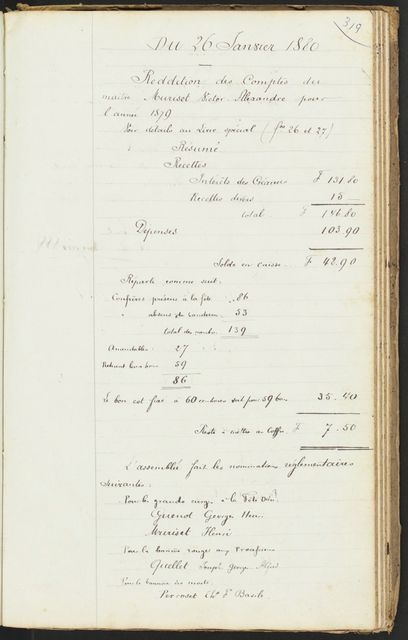 319
DU 26 Janvier 1880
Reddition des Comptes du
maitre Muriset Victor Alexandre pour
l'année 1879
Voir détails au livre spécial (fos 26 et 27)
Résumé
Recettes
Intérêts des Créances F 131.80
Recettes divers 15
total F 146.80
Dépenses 103.90
Solde en caisse F 42.90
Réparti comme suit:
Confrères présens à la fête 86
" absens du 53
total des membr. 139
Amendables 27
Retirent leur bons 59
86
Le bon est fixé à 60 centimes soit pour 59 bons 35.40
Reste à mettre au Coffre F 7.50
L'assemblée fait les nominations réglementaires
suivantes:
Pour le grand cierge de la Fête Dieu
Guenot George Henri
Muriset Henri
Pour la bannière rouge aux Processions
Quellet Joseph George Alfred
Pour la bannière des morts
Perroset Chs Fs Basile